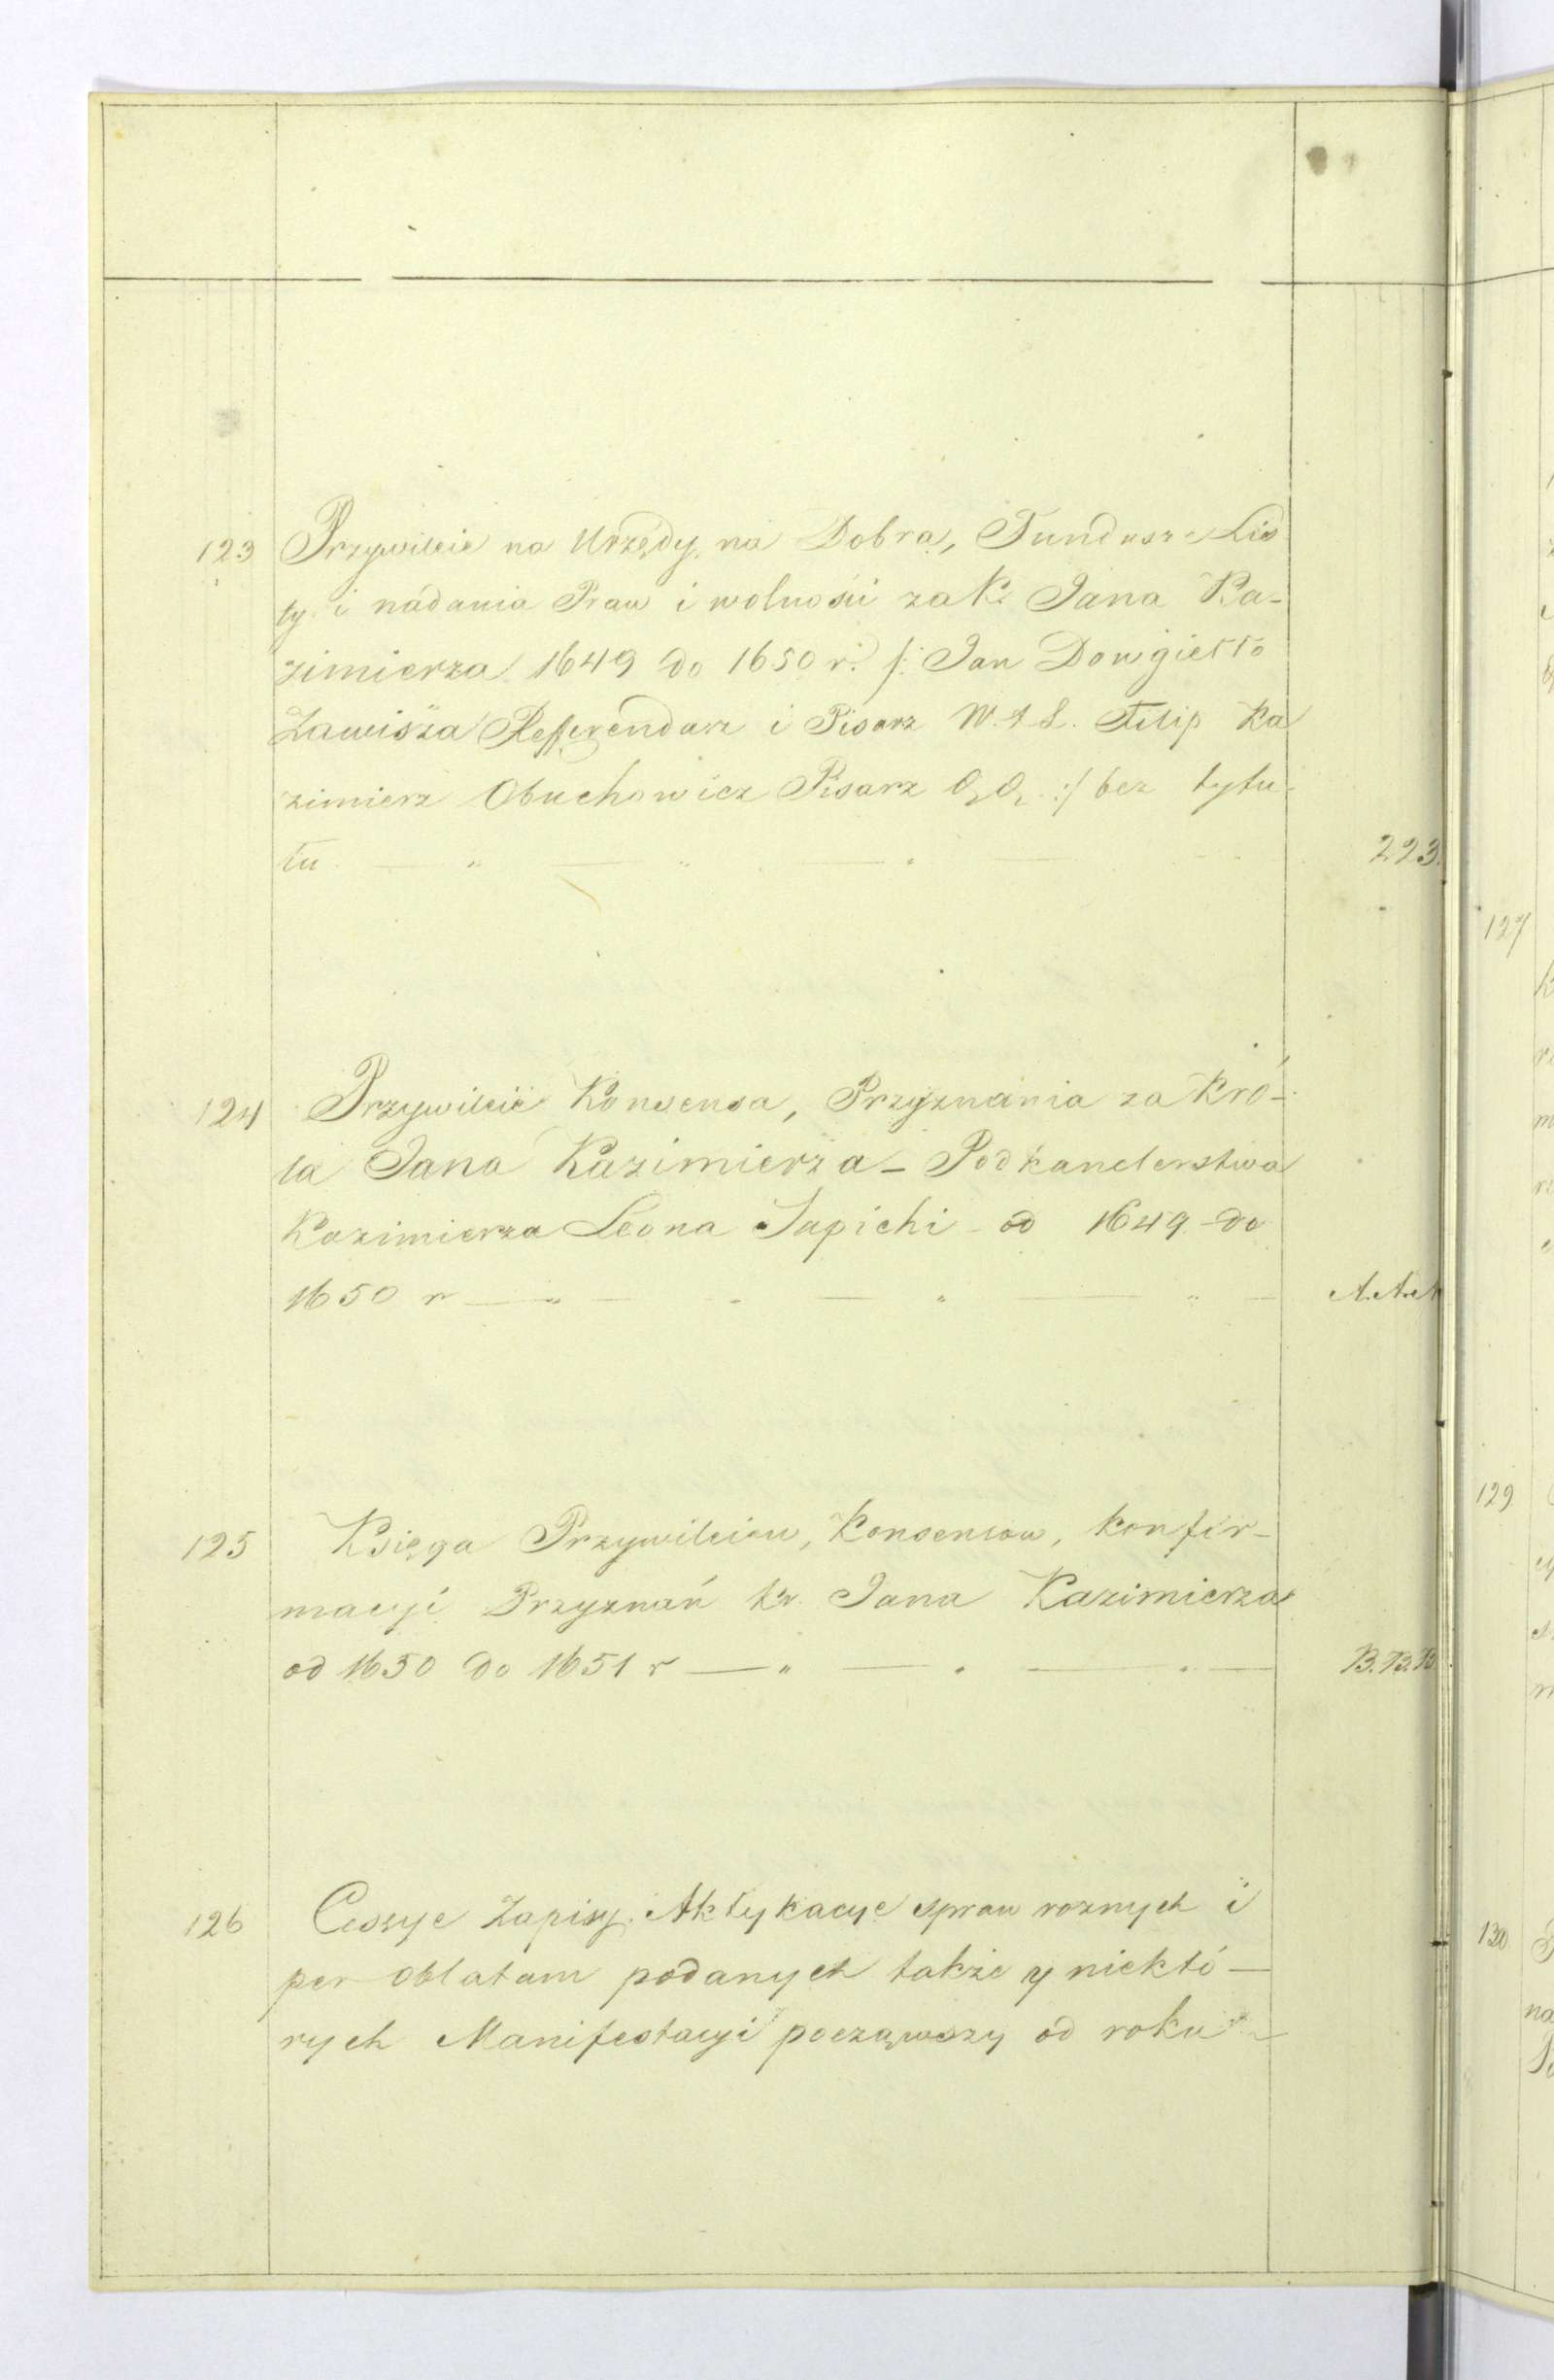 123 Przywileie na Urzędy, na Dobra, Fundusze Lis
ty i nadania Praw i wolności za K. Jana Ka-
zimierza 1649 do 1650 r. /: Jan Dowgiełło
Zawisza Refferendarz i Pisarz W. X L. Filip Ka
zimierz Obuchowicz Pisarz :/ bez tytu-
łu 223.
124 Przywileie Konsensa, Przyznania za Kró-
la Jana Kazimierza - Podkanclerstwa
Kazimierza Leona Sapiehi - od 1649 do
1650 r A.A.A
125 Księga Przywileiow, Konsensow, konfir-
macyi Przyznań kr. Jana Kazimierza
od 1650 do 1651 r B.B.B.
126 Cessye Zapisy, Aktykacye spraw roznych i
per oblatam podanych także y niektó-
rych Manifestacyi począwszy od roku
127
129
130